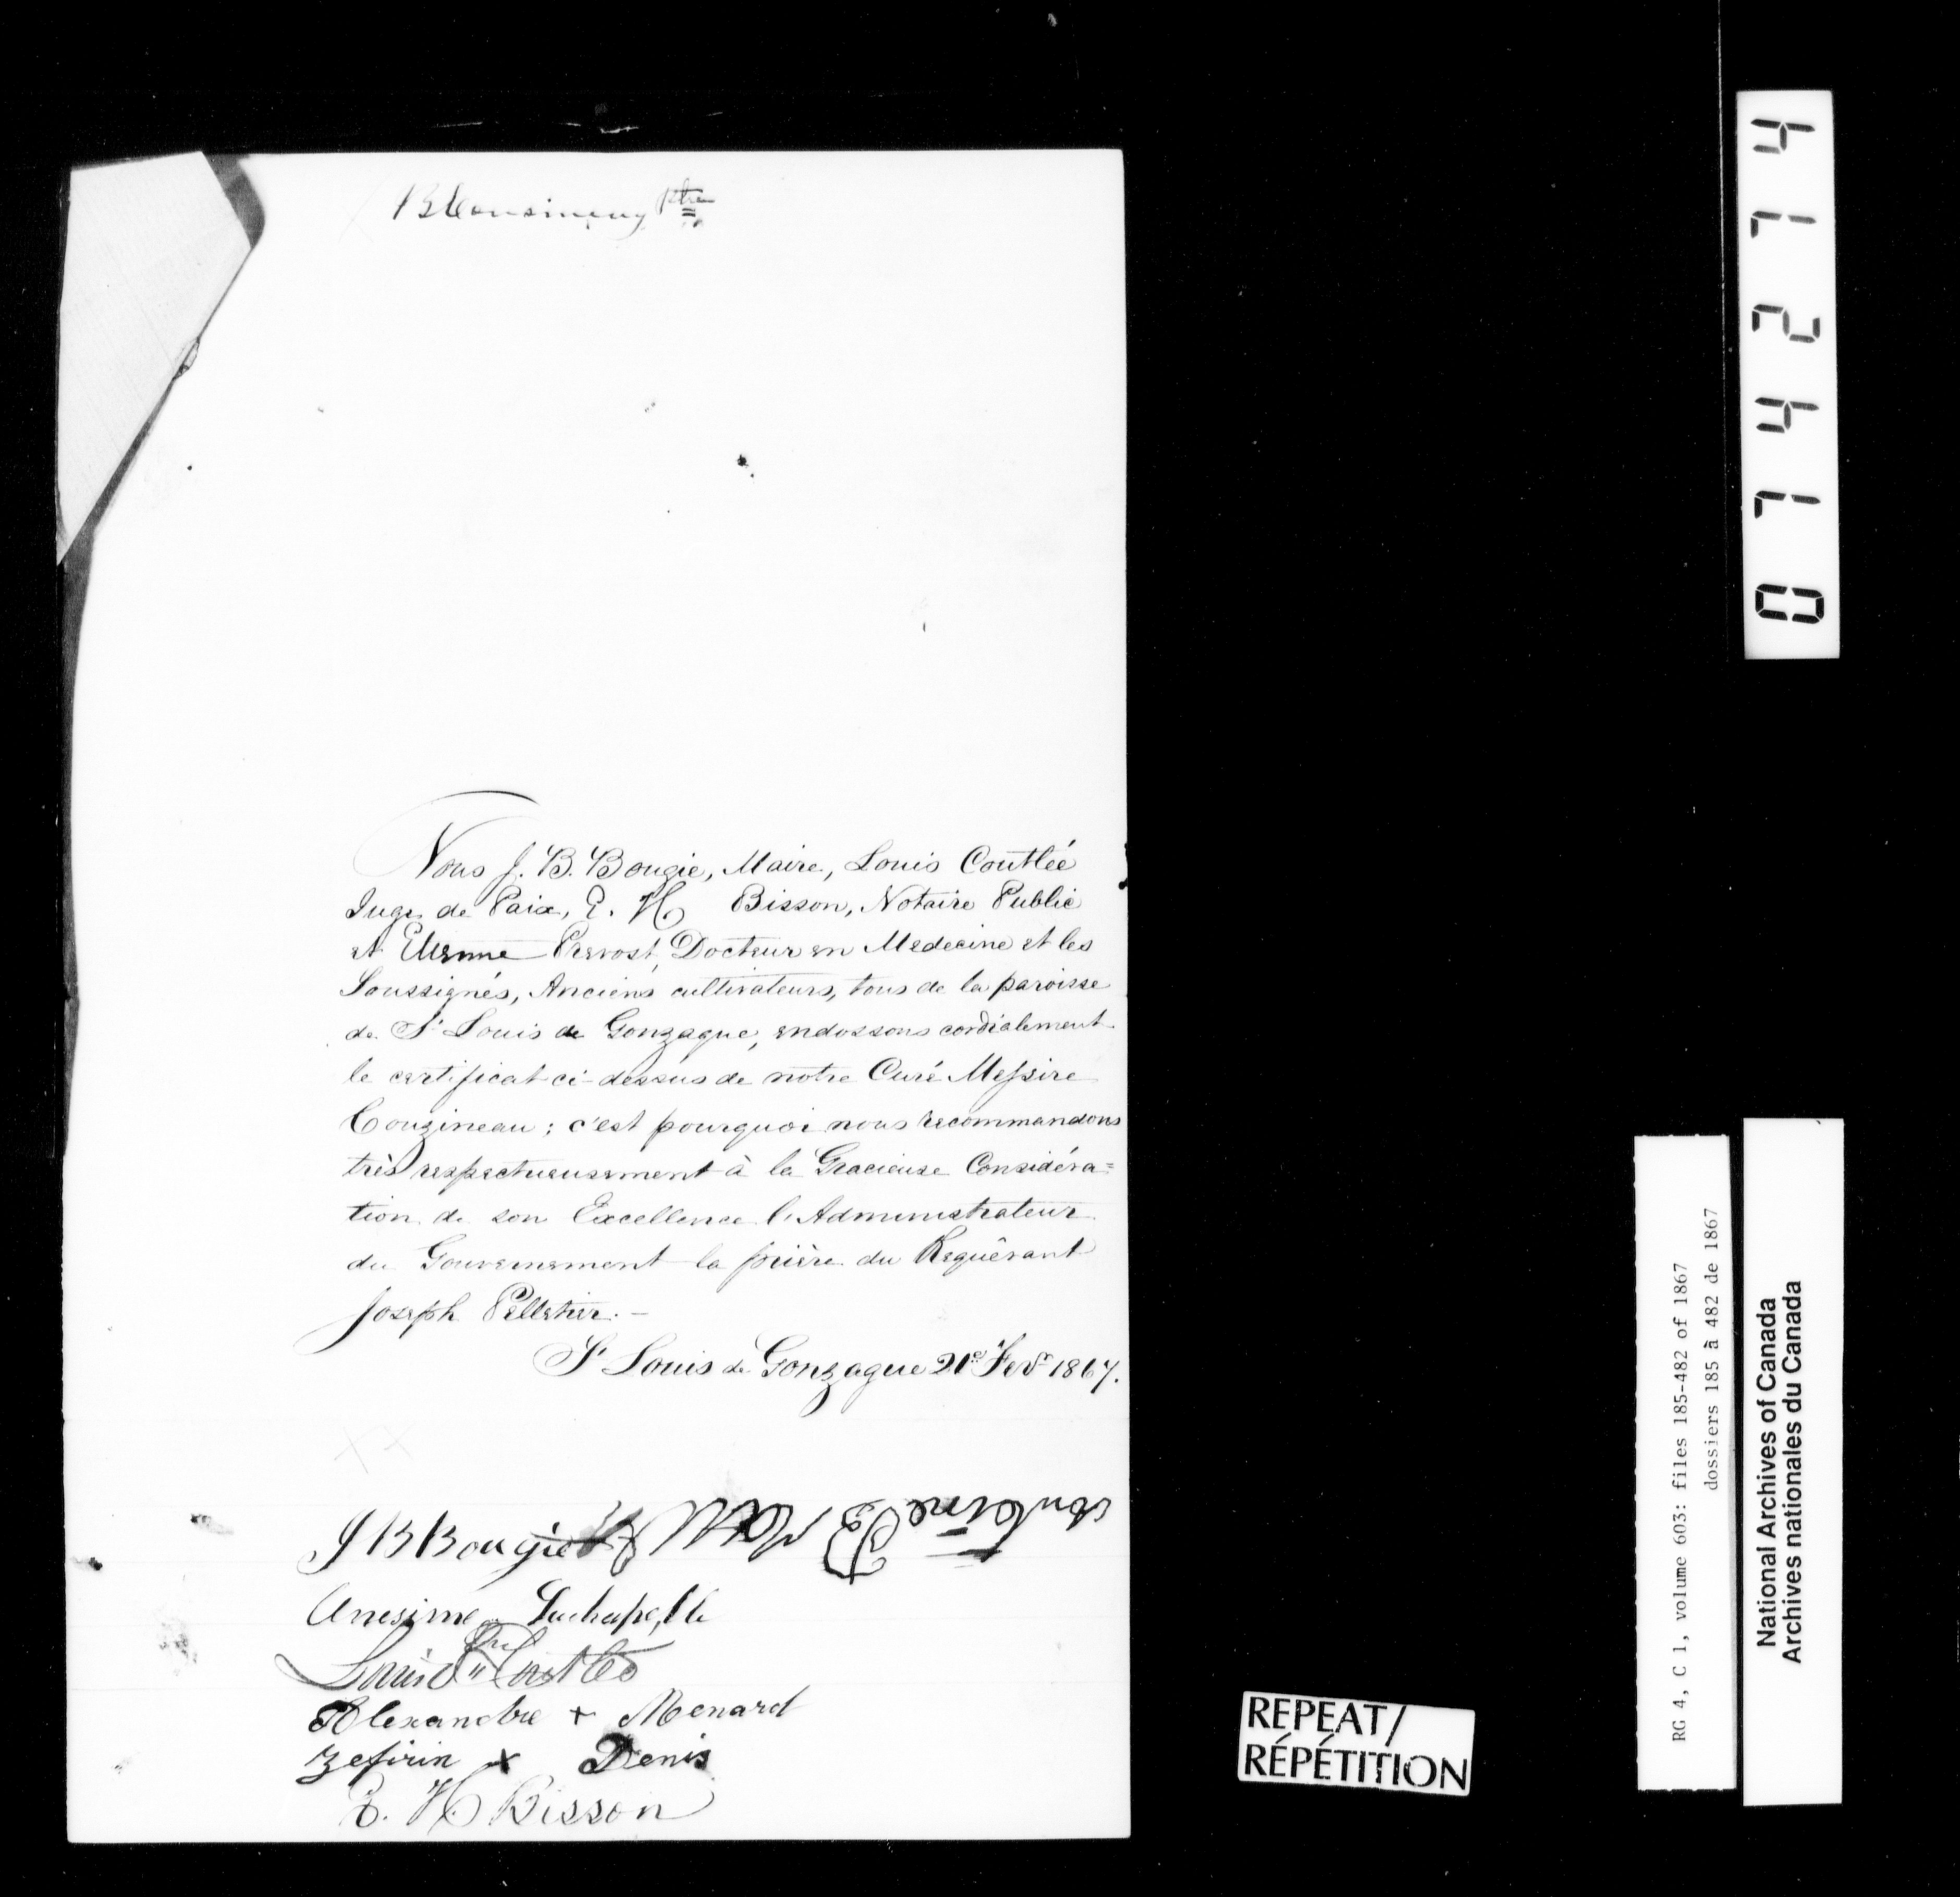 Ptre
Nous J. B. Bougie, Maire, Louis Coutlée
Juge de Paix, E. H. Bisson, Notaire Public
et Etienne Prevost, Docteur en Medecine et les
Soussignés, Anciens cultivateurs, tous de la paroisse
de St Louis de Gonzague, endossons cordialement
le certificat ci-dessus de notre Curé Messire
Couzineau ; c'est pourquoi nous recommandons
très respectueusement à la Gracieuse Considéra=
tion de son Excellence l'Administrateur
du Gouvernement la prière du Requêrant
Joseph Pelletier. -
St Louis de Gonzague 21e Fevr 1867.
J B Bougie
Antoine
Onesime Lachapelle
Louis Coutlée
Alexandre + Menard
Zefirin x Denis
E. H. Bisson
014214
RG 4, C 1, volume 603: files 185-482 of 1867
dossiers 185 à 482 de 1867
National Archives of Canada
Archives nationales du Canada
REPEAT/
RÉPÉTITION